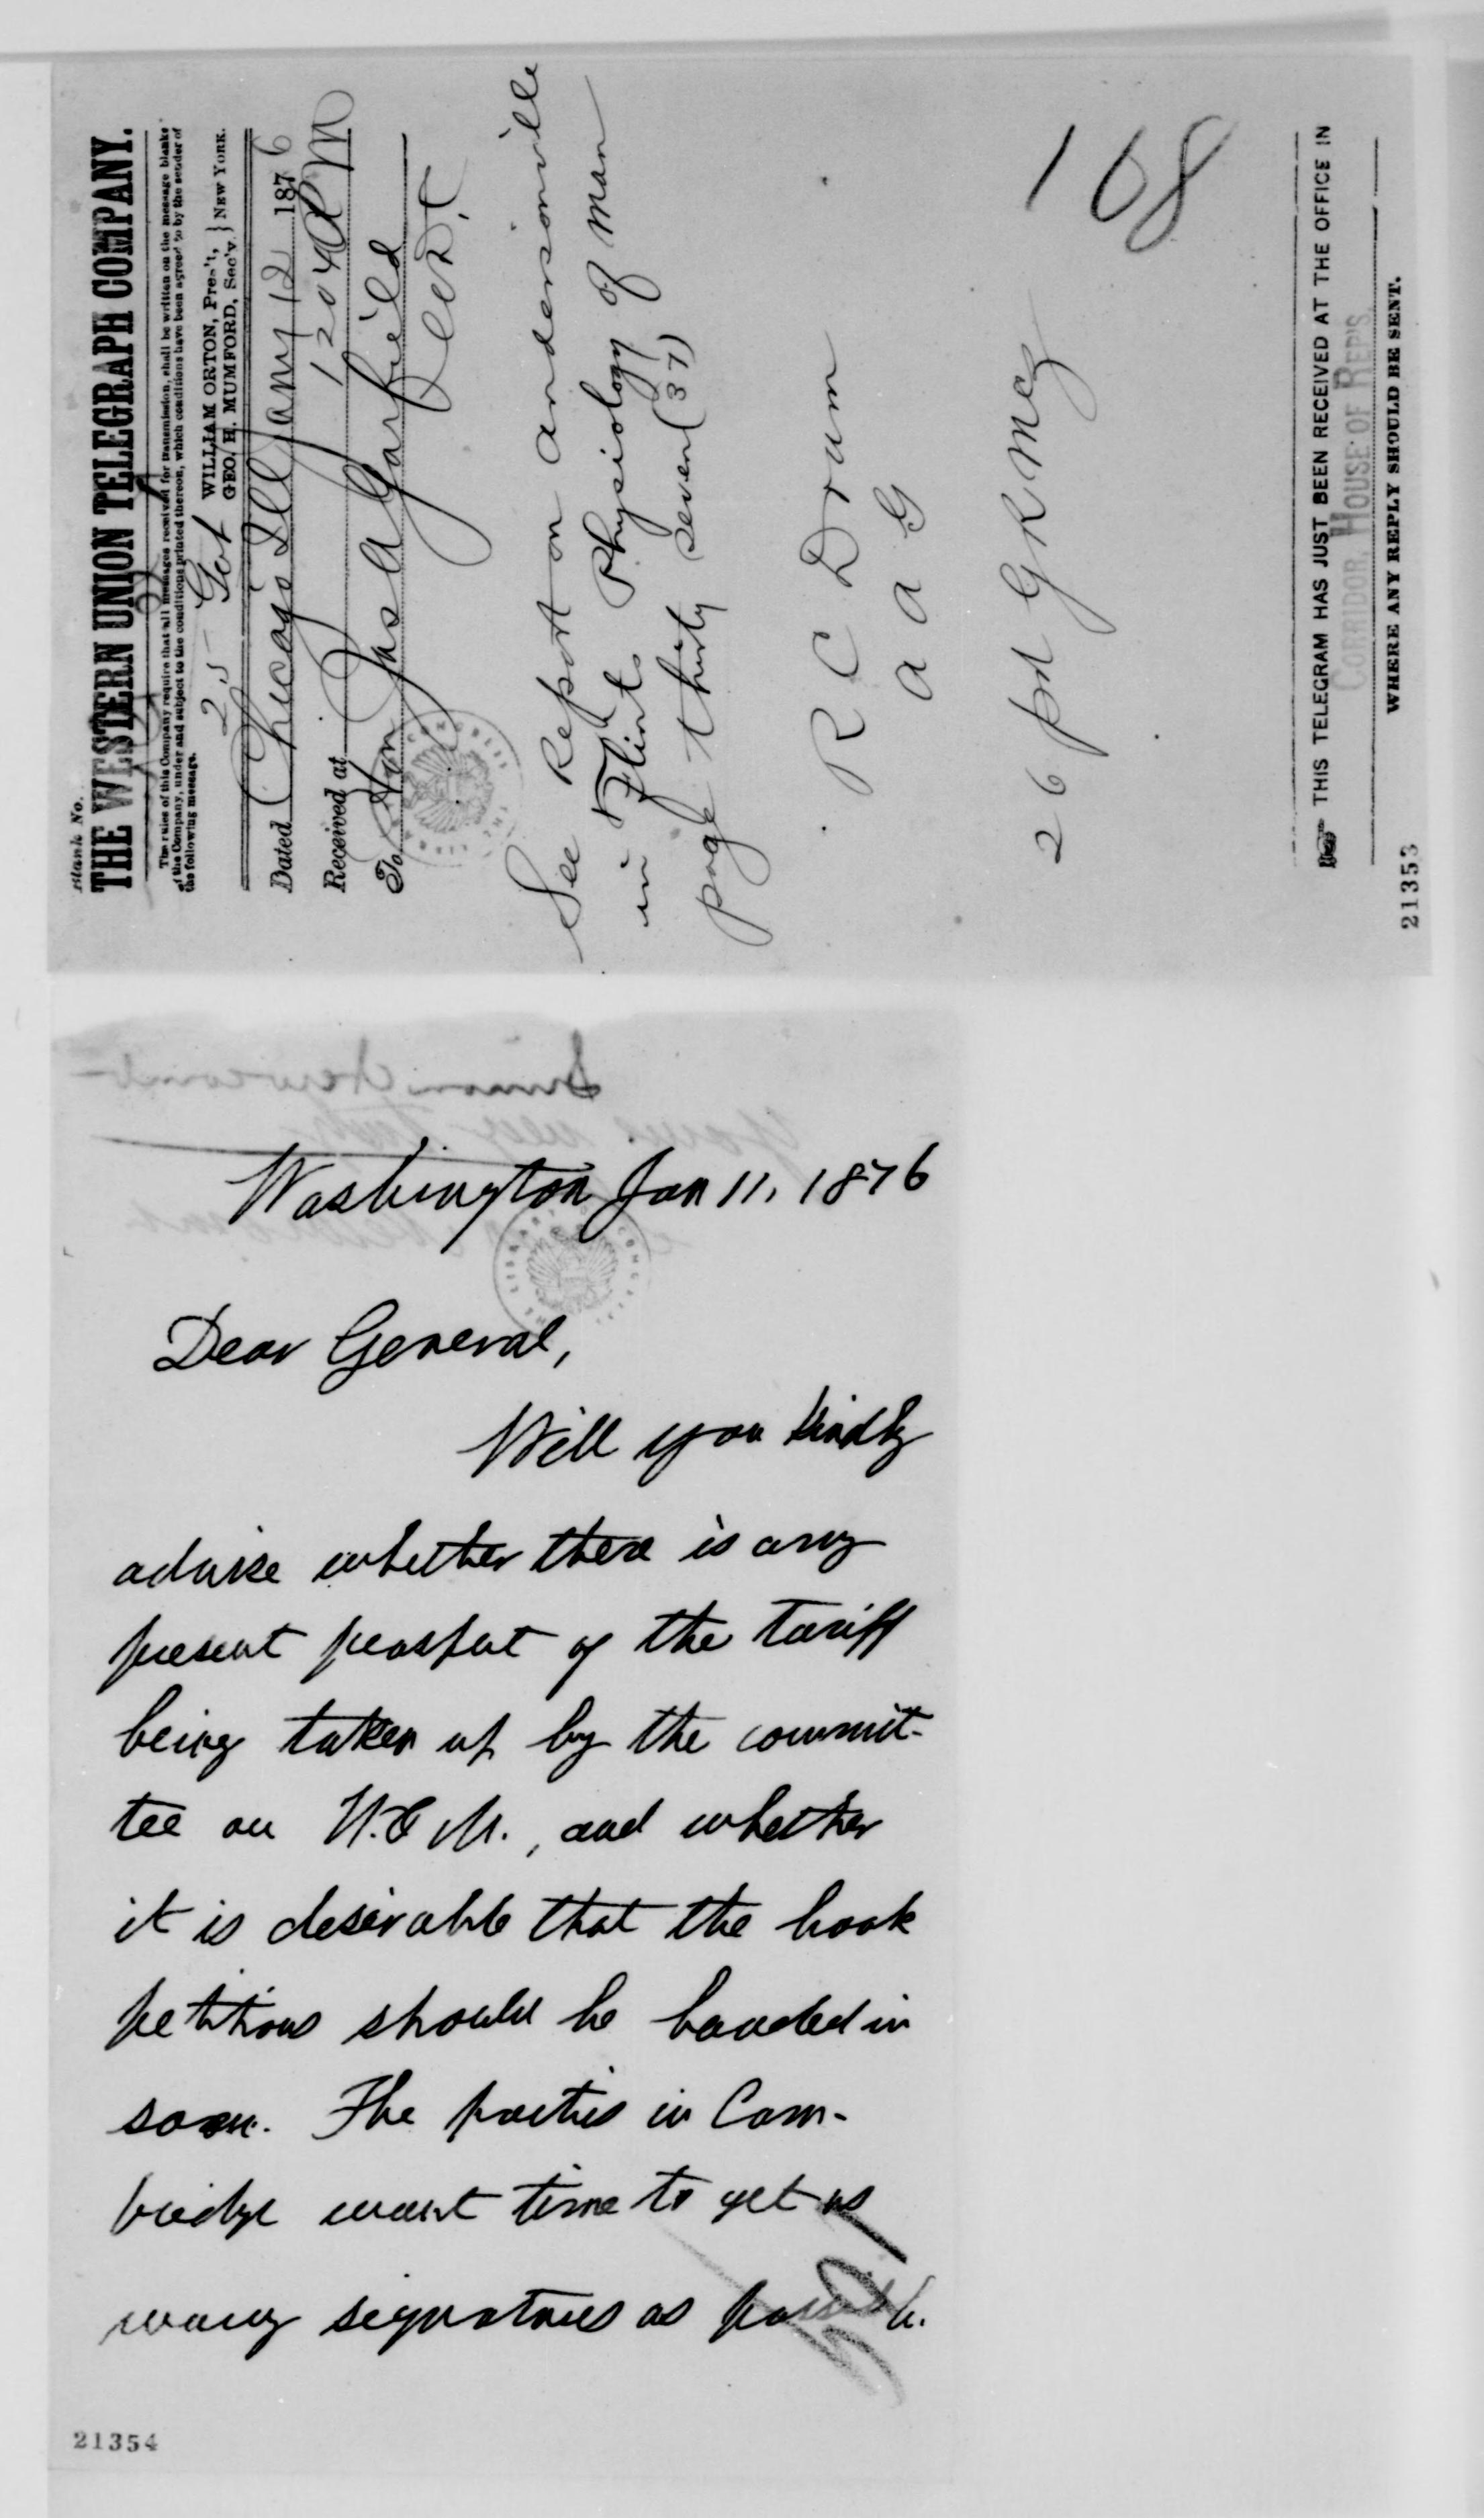 Blank No.
THE WESTERN UNION TELEGRAPH COMPANY.
The rules of this Company require that all messages received for transmission, shall be written on the message blanks
of the Company, under and subject to the conditions printed thereon, which conditions have been agreed to by the sender of
the following message.
25 Gov
WILLIAM ORTON, Pres't, } NEW YORK.
GEO. H. MUMFORD, Sec'y.
Dated Chicago Ill Jany 12 1876
Received at 1204 PM
To Hon Jas A Garfield
See Report on Andersonville
in Flints Physiology of Man
page thirty seven (37)
R C Drum
A A G
26 pd G R Mcg
168
THIS TELEGRAM HAS JUST BEEN RECEIVED AT THE OFFICE IN
CORRIDOR, HOUSE OF REP'S.
WHERE ANY REPLY SHOULD BE SENT.
21353
Simon Newcomb
Yours very truly
Washington Jan 11, 1876
THE LIBRARY OF CONGRESS
Dear General,
Will you kindly
advise whether there is any
present prospect of the tariff
being taken up by the commit-
tee on W. & M., and whether
it is desirable that the book
petitions should be handed in
soon. The parties in Cam-
bridge want time to get as
many signatures as possible.
21354